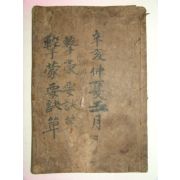 辛亥仲夏五月
擊蒙要訣單
擊蒙要訣單